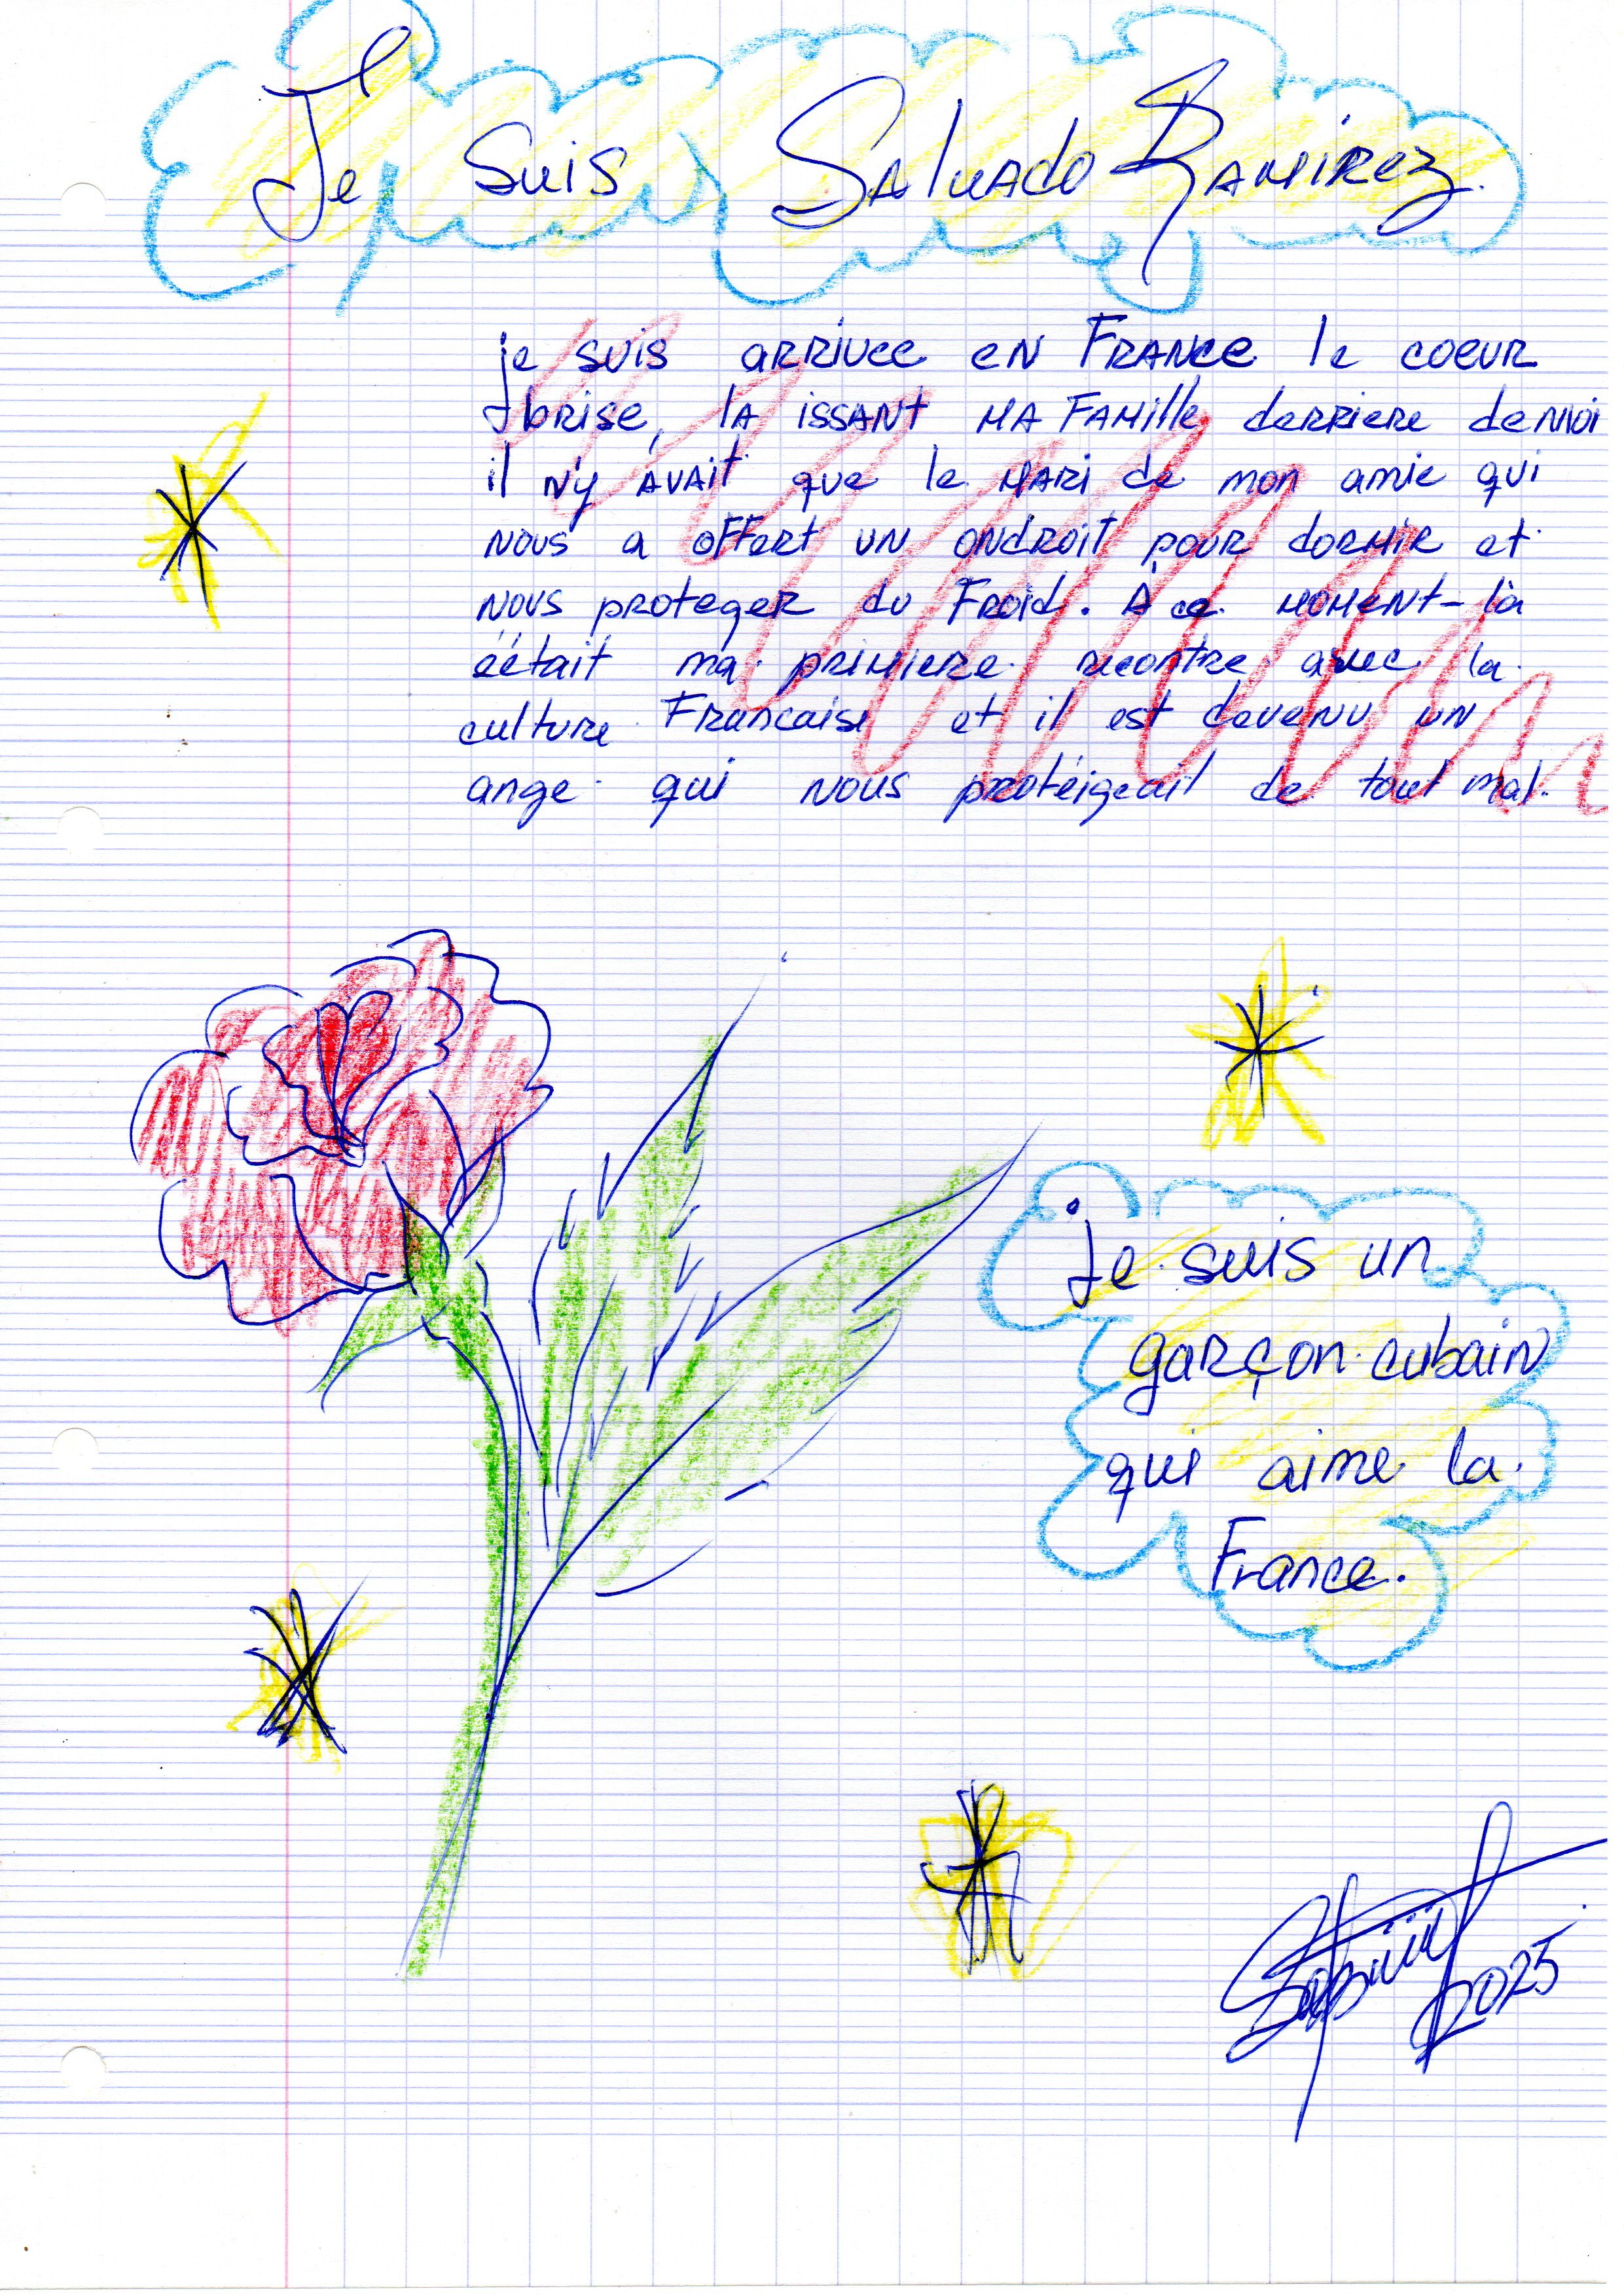 Je suis Salvado Ramirez.
je suis arrivee en France le coeur
brise, la issant ma Famille derriere de moi
il n'y avait que le mari de mon amie qui
nous a offert un ondroit pour dormir et
nous proteger du Froid. À ce moment-là
éétait ma primiere recontre avec la
culture Francaise et il est devenu un
ange qui nous protéigeait de tout mal.
je suis un
garçon cubain
qui aime la
France.
2025